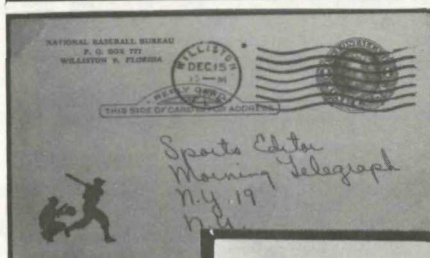 NATIONAL BASEBALL BUREAU
P. O. BOX 777
WILLISTON 8, FLORIDA
WILLISTON
DEC 15
REPLY CARD
THIS SIDE OF CARD IS FOR ADDRESS
Sports Editor
Morning Telegraph
N.Y 19
N.Y.